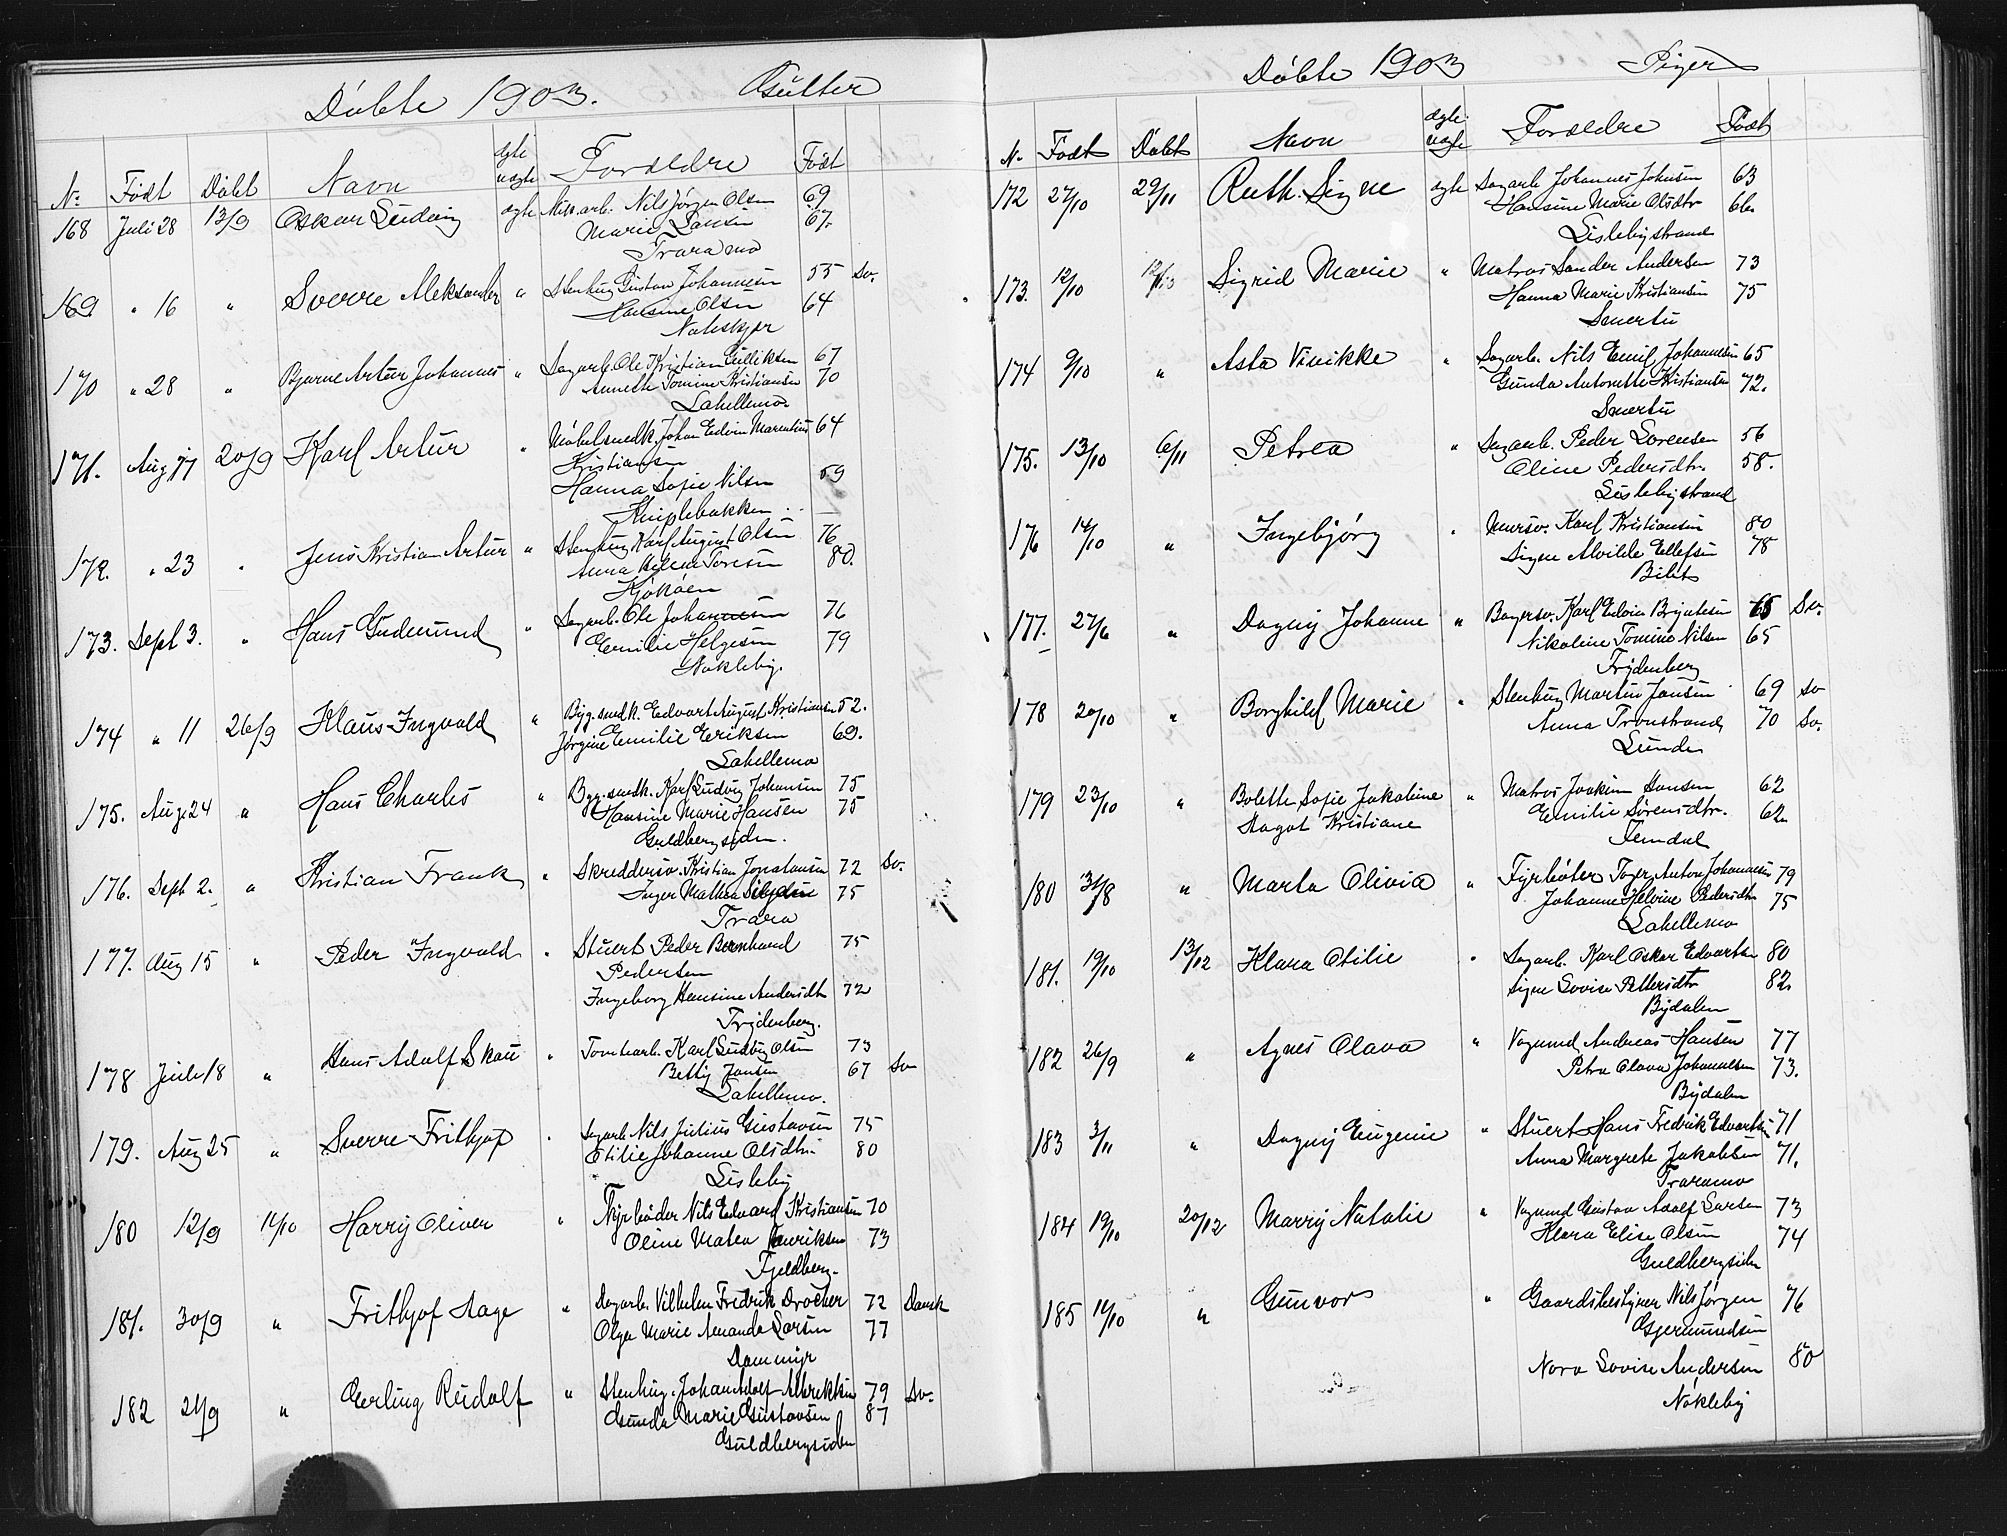 Döbte 1903. Gutter
N. Födt Döbt Navn ægte uægte Forældre Födt
168 Juli 28 13/9 Oskar Ludvig ægte Mek. arb. Nils Jörgen Olsen 69
Marie Larsen 67.
Traramo
169. " 16 " Sverre Aleksander " Stenhug Gustav Johannesen 55 Sv.
Hansine Olsen 64
Nabskjær
170 " 28 " Bjarne Artur Johannes " Dagarb. Ole Kristian Gulliksen 67
Annette Tomine Kristiansen 70
Lahellemo.
171. Aug 17 20/9 Karl Artur " Möbelsnedk. Johan Edvin Marentius 64
Kristiansen
Hanna Sofie Nilsen 59
Kniplebakken
172. " 23 " Jens Kristian Artur " Stenhug Karl August Olsen 76
Anna Helene Toresen 80.
Kjököen
173. Sept 3. " Hans Gudmund " Dagarb. Ole Johannesen 76
Emilie Helgesen 79
Nökleby.
174 " 11 26/9 Klaus Ingvald " Byg. snedk. Edvart August Kristiansen 52.
Jörgine Emilie Eriksen 69.
Lahellemo
175. Aug 24 " Hans Charles " Byg. snedk. Karl Ludvig Johansen 75
Hansine Marie Hansen 75
Guldbergsiden.
176. Sept 2. " Kristian Frank " Skreddersv. Kristian Jonatansen 72 Sv.
Inger Mathea 75
Trara
177. Aug 15 " Peder Ingvald " Stuert Peder Bernhard 75
Pedersen
Ingeborg Hansine Andersdtr 72
Frydenberg.
178 Juli 18 " Hans Adolf Skau " Tomtearb. Karl Ludvig Olsen 73
Betty Jansen 67 Sv
Lahellemo.
179. Aug 25 " Sverre Frithjof " Dagarb Nils Julius Gustavsen 75
Otilie Johanne Olsdtr 80
Lisleby
180 12/9 11/10 Harry Oliver " Fyrböder Nils Edvard Kristiansen 70
Oline Matea Henriksen 73
Fjeldberg.
181. 30/9 " Frithjof Aage " Dagarb. Vilhelm Fredrik Drocher 72 Dansk
Olga Marie Amanda Larsen 77
Dammyr
182 21/9 " Gerling Rudolf " Stenhug. Johan Adolf Albrektsen 79 Sv.
Gunda Marie Gustavsen 87
Guldbergsiden
Döbte 1903 Piger
N. Födt Döbt Navn ægte uægte Forældre Födt
172 27/10 29/11 Ruth Signe ægte Dagarb Johannes Johnsen 63
Hansine Marie Olsdtr 66.
Lislebystrand
173. 12/10 Sigrid Marie " Matros Sander Andersen 73
Hanna Marie Kristiansen 75
Smertu
174 9/10 " Asta Vinikke " Dagarb. Nils Emil Johannesen 65
Gunda Antonette Kristiansen 72.
Smertu
175. 13/10 6/11 Petrea " Dagarb. Peder Sörensen 56
Oline Pedersdtr. 58.
Lislebystrand
176 14/10 " Ingebjörg " Mursv. Karl Kristiansen 80
Signe Alvilde Ellefsen 78
Bilit
177. 27/6 " Dagny Johanne " Bagersv. Karl Edvin Bryntesen 65 Sv.
Nikoline Tomine Nilsen 65
Frydenberg
178 20/10 " Borghild Marie " Stenhug Martin Jansen 69 Sv
Anna Tronstrand 70 Sv.
Lunde
179 23/10 " Bolette Sofie Jakobine " Matros Joakim Hansen 62
Magot Kristiane Emilie Sörensdtr. 62.
Femdal
180 31/8 " Marta Olivia " Fyrböter Inger Anton Johannesen 79
Johanne Helvine Pedersdtr 75
Lahellemo
181. 19/10 13/12 Klara Otilie " Dagarb. Karl Oskar Edvartsen 80
Signe Lovise Pettersdtr 82.
Bydalen
182 26/9 " Agnes Olava " Vognmd Andreas Hansen 77
Petra Olava Johannesen 73.
Bydalen
183 3/11 " Dagny Eugenie " Stuert Hans Fredrik Edvartsen 71
Anna Margrete Jakobsen 71.
Traramo
184 19/10 20/12 Marry Natalie " Vognmd Gustav Adolf Larsen 73
Klara Elise Olsen 74
Guldbergsiden
185 14/10 " Gunvor " Gaardsbestyrer Nils Jörgen 76
Gjermundsen
Nora Lovise Andersen 80
Nökleby